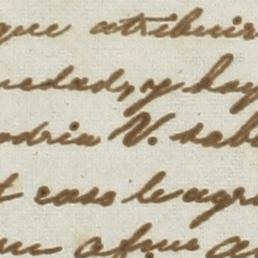 que atribuir
uedad, y hay
odria V. sabe
t caso le agra